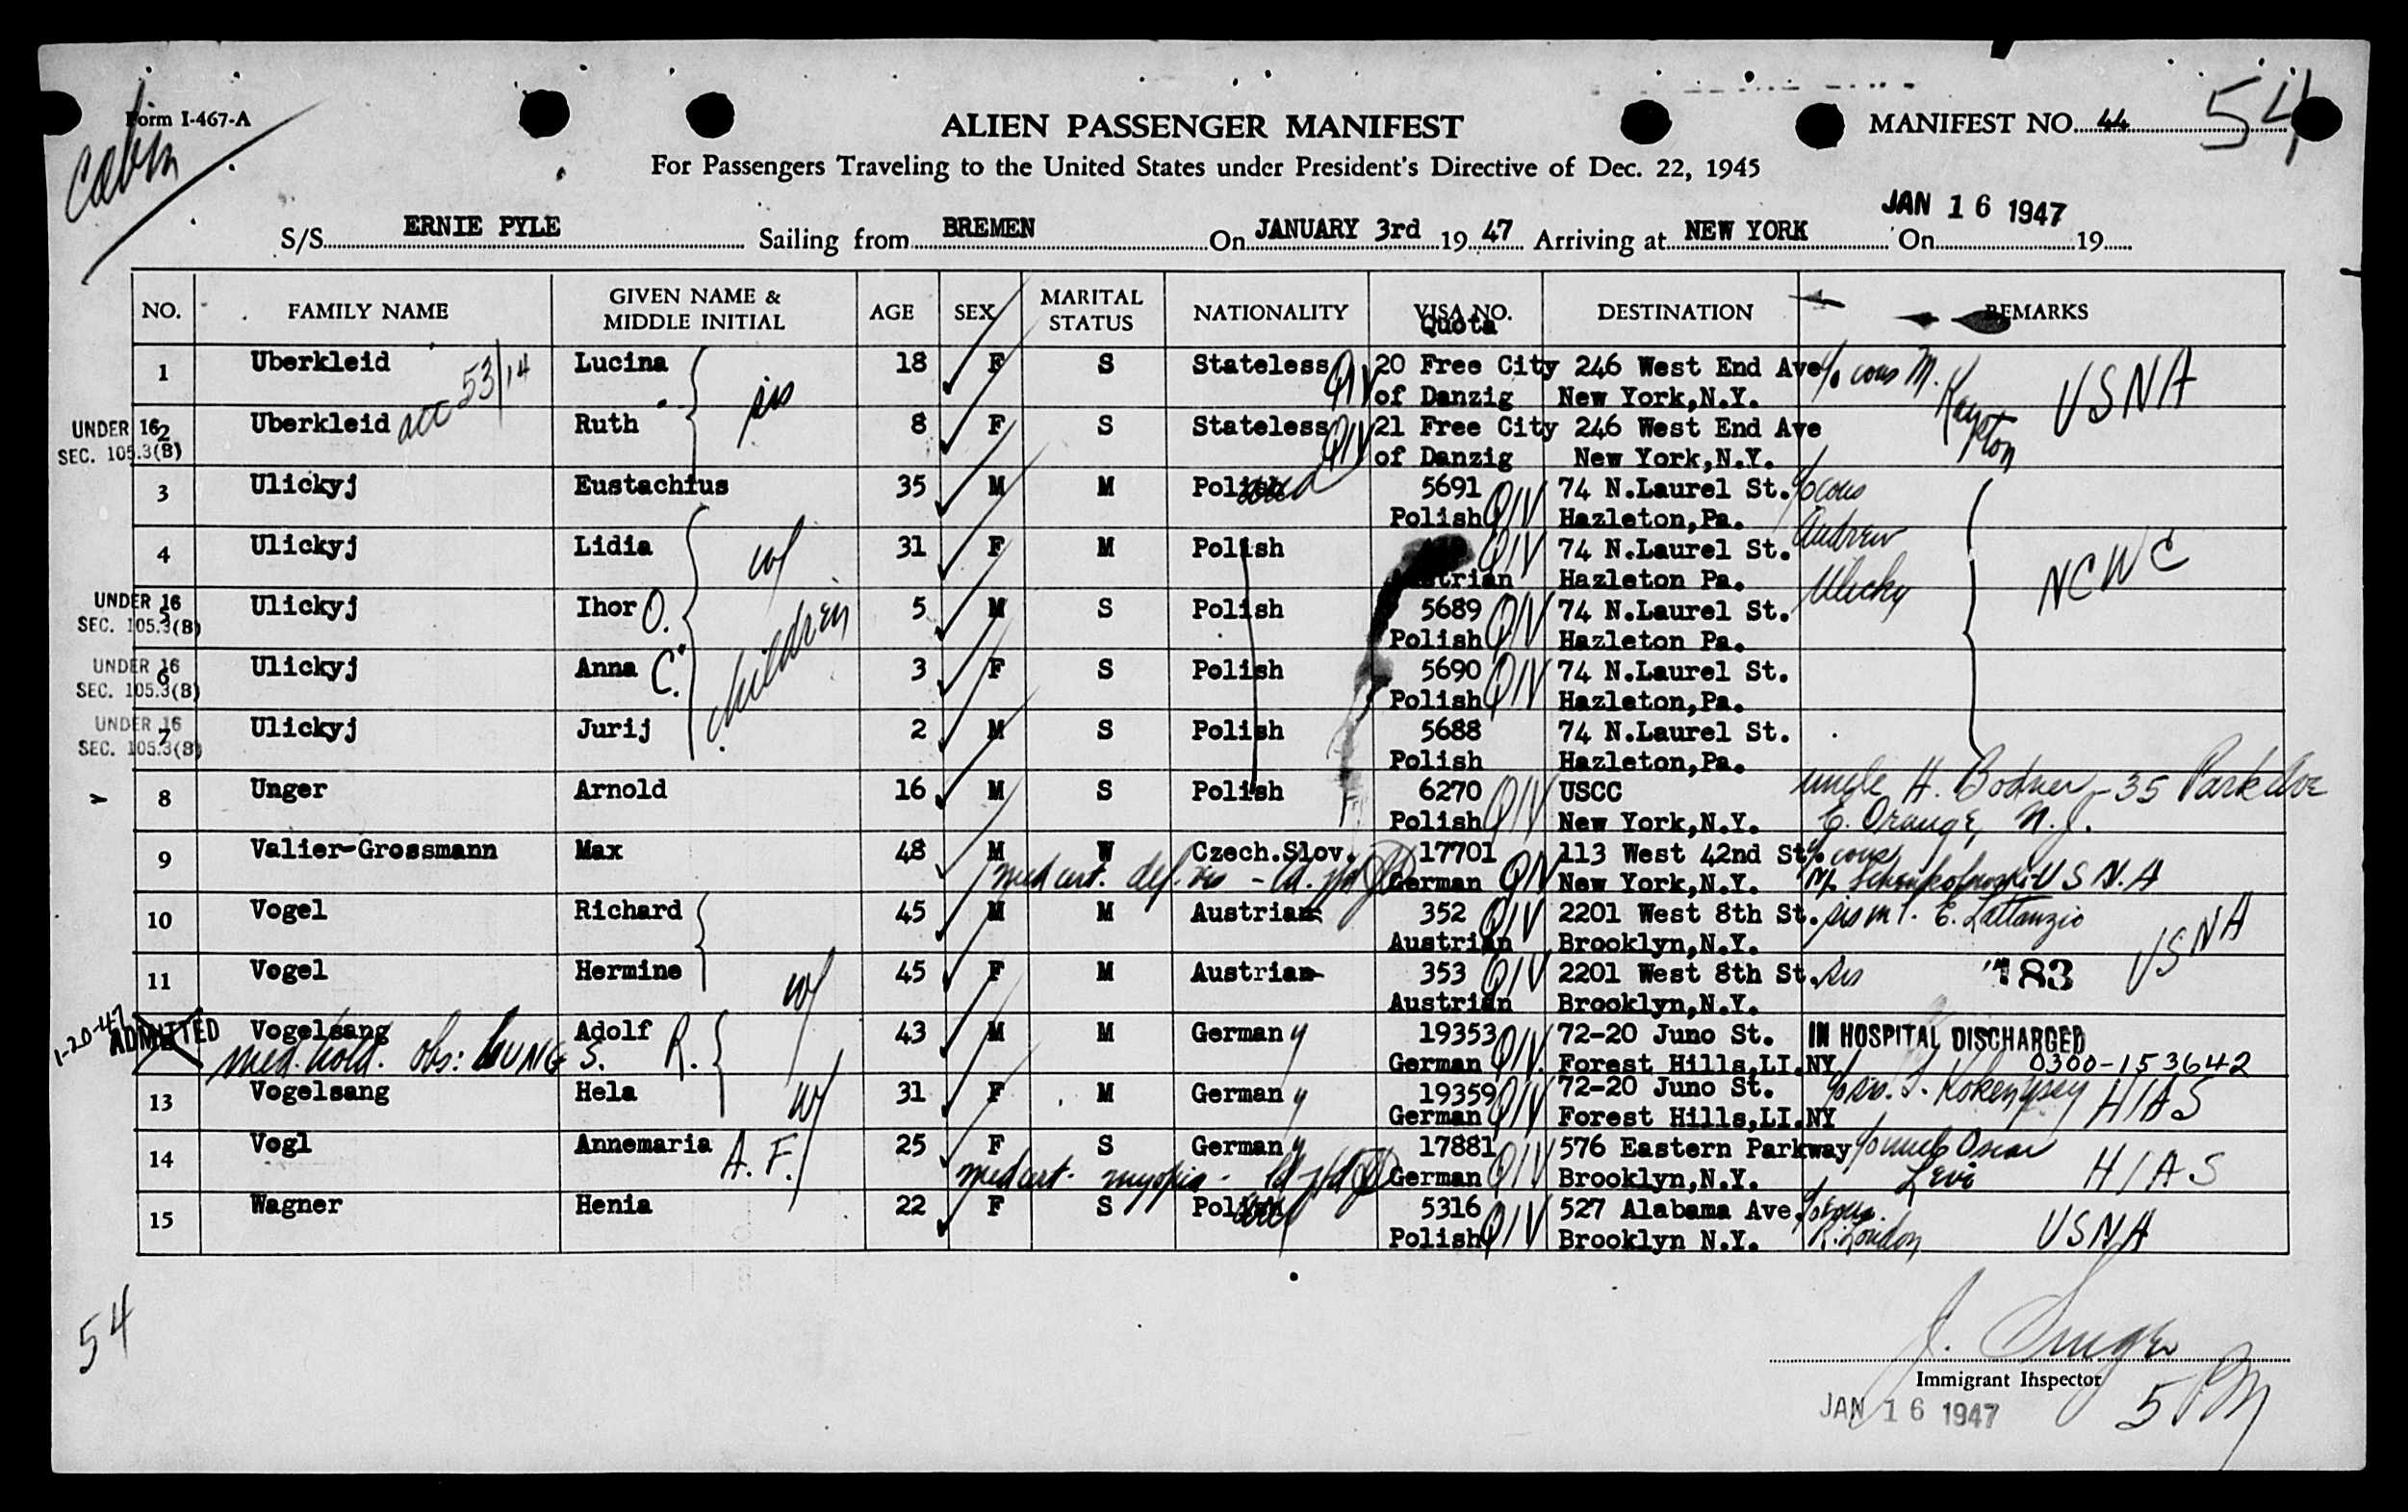 Form I-467-A
Cabin
ALIEN PASSENGER MANIFEST
MANIFEST NO. 44
54
For Passengers Traveling to the United States under President's Directive of Dec. 22, 1945
JAN 16 1947
S/S ERNIE PYLE Sailing from BREMEN On JANUARY 3rd 19 47 Arriving at NEW YORK On 19
NO. FAMILY NAME GIVEN NAME & MIDDLE INITIAL AGE SEX MARITAL STATUS NATIONALITY VISA NO. Quota DESTINATION REMARKS
1 Uberkleid Lucina 18 F S Stateless QIV 20 Free City 246 West End Ave c/o cous M.
53/14 sis of Danzig New York,N.Y. USNA
UNDER 16 2 Uberkleid acc Ruth 8 F S Stateless QIV 21 Free City 246 West End Ave
SEC. 105.3(B) of Danzig New York,N.Y.
3 Ulickyj Eustachius 35 M M Polish 5691 QIV 74 N.Laurel St. c/o cous
Polish Hazleton,Pa.
4 Ulickyj Lidia w/ 31 F M Polish QIV 74 N.Laurel St. Andrew
Hazleton Pa. Ulicky NCWC
UNDER 16 5 Ulickyj Ihor O. 5 M S Polish 5689 QIV 74 N.Laurel St.
SEC. 105.3(B) children Polish Hazleton Pa.
UNDER 16 6 Ulickyj Anna C. 3 F S Polish 5690 QIV 74 N.Laurel St.
SEC. 105.3(B) Polish Hazleton,Pa.
UNDER 16 7 Ulickyj Jurij 2 M S Polish 5688 74 N.Laurel St.
SEC. 105.3(B) Polish Hazleton,Pa.
8 Unger Arnold 16 M S Polish 6270 QIV USCC uncle H. Bodner - 35 Park Ave
Polish New York,N.Y. E. Orange, N.J.
9 Valier-Grossmann Max 48 M W Czech.Slov. 17701 113 West 42nd St c/o cous
med cert. def. vis German QIV New York,N.Y. USN.A
10 Vogel Richard 45 M M Austrian 352 QIV 2201 West 8th St. sis E. Lattanzio
Austrian Brooklyn,N.Y. USNA
11 Vogel Hermine w/ 45 F M Austrian 353 QIV 2201 West 8th St. sis 183
Austrian Brooklyn,N.Y.
1-20-47 ADMITTED Vogelsang Adolf R. 43 M M Germany 19353 QIV 72-20 Juno St. IN HOSPITAL DISCHARGED
med. hold. obs: LUNGS. German Forest Hills,LI.NY 0300-153642
13 Vogelsang Hela w/ 31 F M Germany 19359 QIV 72-20 Juno St. HIAS
German Forest Hills,LI.NY
14 Vogl Annemaria A. F. 25 F S Germany 17881 QIV 576 Eastern Parkway c/o uncle Oscar
med cert. myopia German Brooklyn,N.Y. Levi HIAS
15 Wagner Henia 22 F S Polish 5316 QIV 527 Alabama Ave. c/o cous.
Polish Brooklyn N.Y. R. London USNA
54
J. Singer
Immigrant Inspector
JAN 16 1947
5 PM